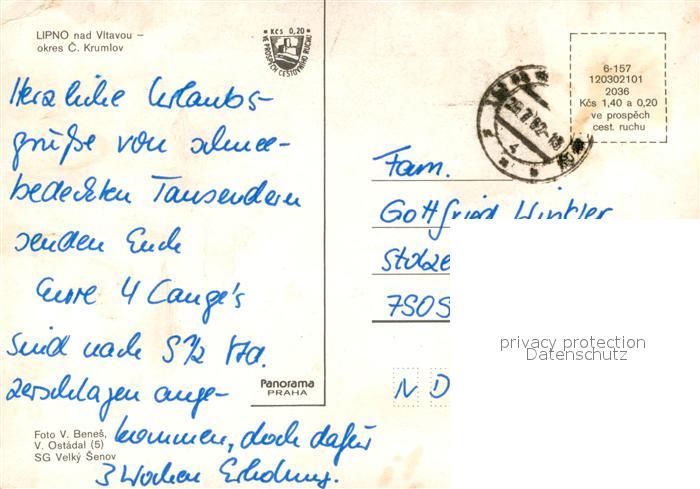 LIPNO nad Vltavou –
okres Č. Krumlov
* Kčs 0,20 *
VE PROSPĚCH CESTOVNÍHO RUCHU
6-157
120302101
2036
Kčs 1,40 a 0,20
ve prospěch
cest. ruchu
Herzliche Urlaubs-
grüße von schnee-
bedeckten Tausendern
senden Euch
Eure 4 Lange's
Sind nach 5 1/2 Std.
zerschlagen ange-
kommen, doch dafür
3 Wochen Erholung.
Fam.
Gottfried Winkler
Stolze
7505
N D
Panorama
PRAHA
Foto V. Beneš,
V. Ostádal (5)
SG Velký Šenov
privacy protection
Datenschutz